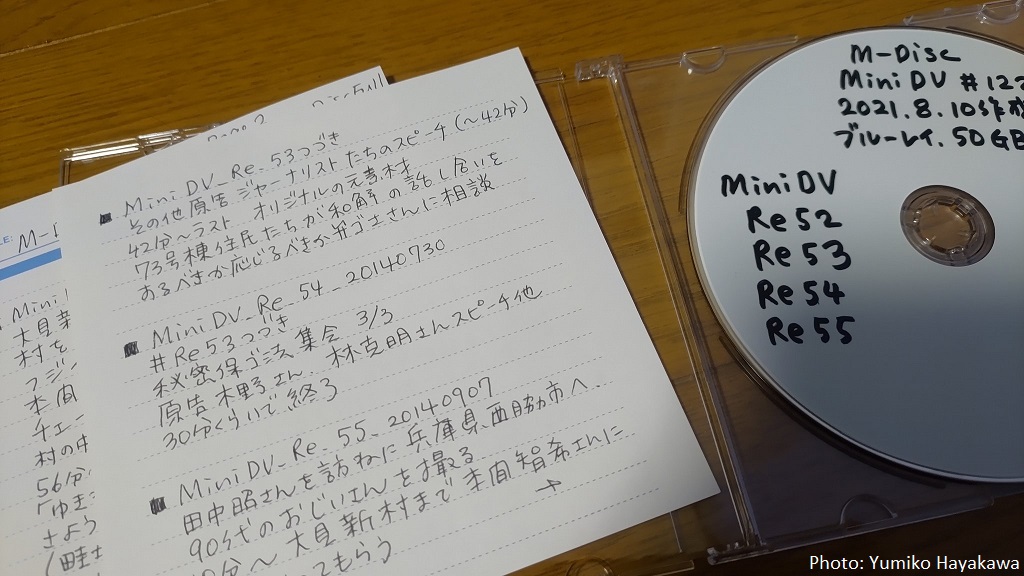 Mini DV_Re_53つづき
その他原告 ジャーナリストたちのスピーチ(〜42分)
42分〜ラスト オリジナルの元吉村
73号棟住民たちが和解の話し合いを
あるべきか応じるべきか弁ゴ士さんに相談
Mini DV_Re_54_20140730
#Re53つづき
秘密保ゴ法集会 3/3
原告 木野さん、林克明さんスピーチ他
30分くらいで終了
Mini DV_Re_55_20140907
田中昭さんを訪ねに兵庫県西脇市へ.
90代のおじいさんを撮る
分〜大見新村まで 本間智希さんに
てもらう →
M-
Mini
大見
村を
フジ
本間
チェ
村の
56分
「ゆき
さよう
M-Disc
Mini DV #122
2021.8.10
ブルーレイ.50GB
Mini DV
Re 52
Re 53
Re 54
Re 55
Photo: Yumiko Hayakawa